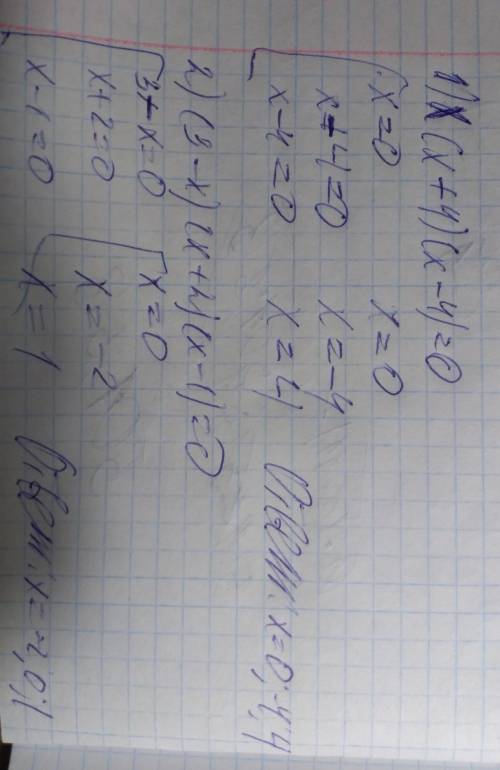 1) x(x+4)(x-4)=0
x=0 x=0
x+4=0 x=-4
x-4=0 x=4 Ответ: x=0;-4;4
2) (3-x)(x+4)(x-1)=0
3-x=0 x=0
x+2=0 x=-2
x-1=0 x=1 Ответ: x=-2;0;1